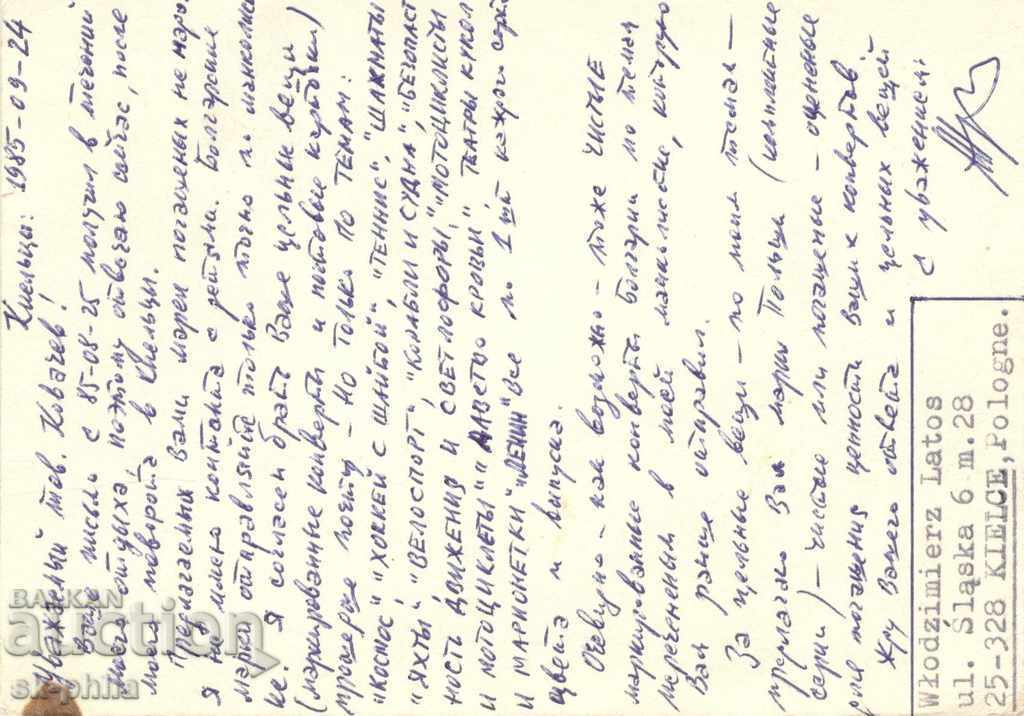 Кельцы: 1985-09-24
Уважаемый тов. Ковачев!
Ваше письмо с 85-08-25 получил в течении
моего отдыха, поэтому отвечаю сейчас, после
моего поворота в Кельцы.
Предлагаемых Вами марек погашеных не надо.
Я не имею контакта с детями. Болгарские
марки отправляйте только точно по манколист-
ке. Я согласен брать Ваше цельные вещи
(маркированные конверты и почтовые карточки)
прошедше почту – но только по темам:
"КОСМОС" "ХОККЕЙ С ШАЙБОЙ", "ТЕННИС", "ШАХМАТЫ"
"ЯХТЫ", "ВЕЛОСПОРТ", "КОРАБЛИ И СУДНА", "БЕЗОПАС
НОСТЬ ДВИЖЕНИЯ И СВЕТЛОФОРЫ", "МОТОЦИКЛИСТЫ
И МОТОЦИКЛЕТЫ" "ДАВСТВО КРОВЫ" "ТЕАТРЫ КУКОЛ
И МАРИОНЕТКИ" "ЛЕНИН" Все по 1 шт каждого сорта
цвета и выпуска.
Очевидно – как возможно – тоже ЧИСТЫЕ
маркированые конверты Болгарии по темам
мереченным в моей манколистке, которую
Вам ранше отправил.
За цельные вещи – по моим темам –
предлагаю Вам марки Польши (целыменые
серии) – чистые или погашение – оценные
для погащения ценности ваших конвертов
Жду Вашего ответа и цельных вещей
с уважением:
Włodzimierz Latos
ul. Śląska 6 m.28
25-328 KIELCE, Pologne.
BALKAN
auction
sk-phila